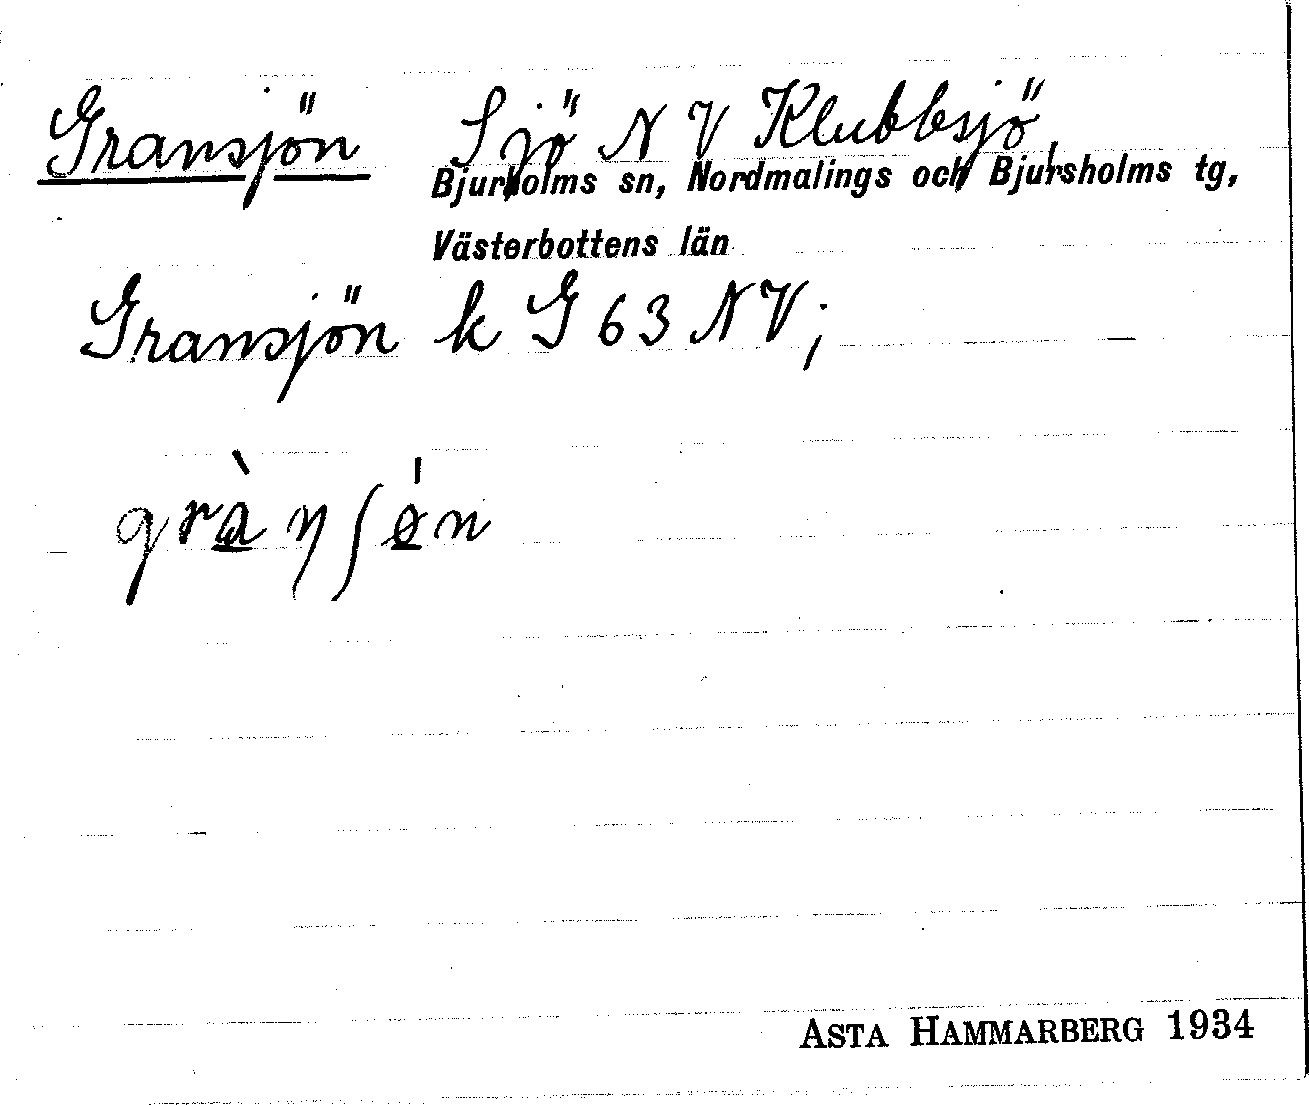 Gransjön Sjö N V Klubbsjö,
Bjurholms sn, Nordmalings och Bjursholms tg,
Västerbottens län
Gransjön k G 63 NV;
grànʃø̀n
ASTA HAMMARBERG 1934